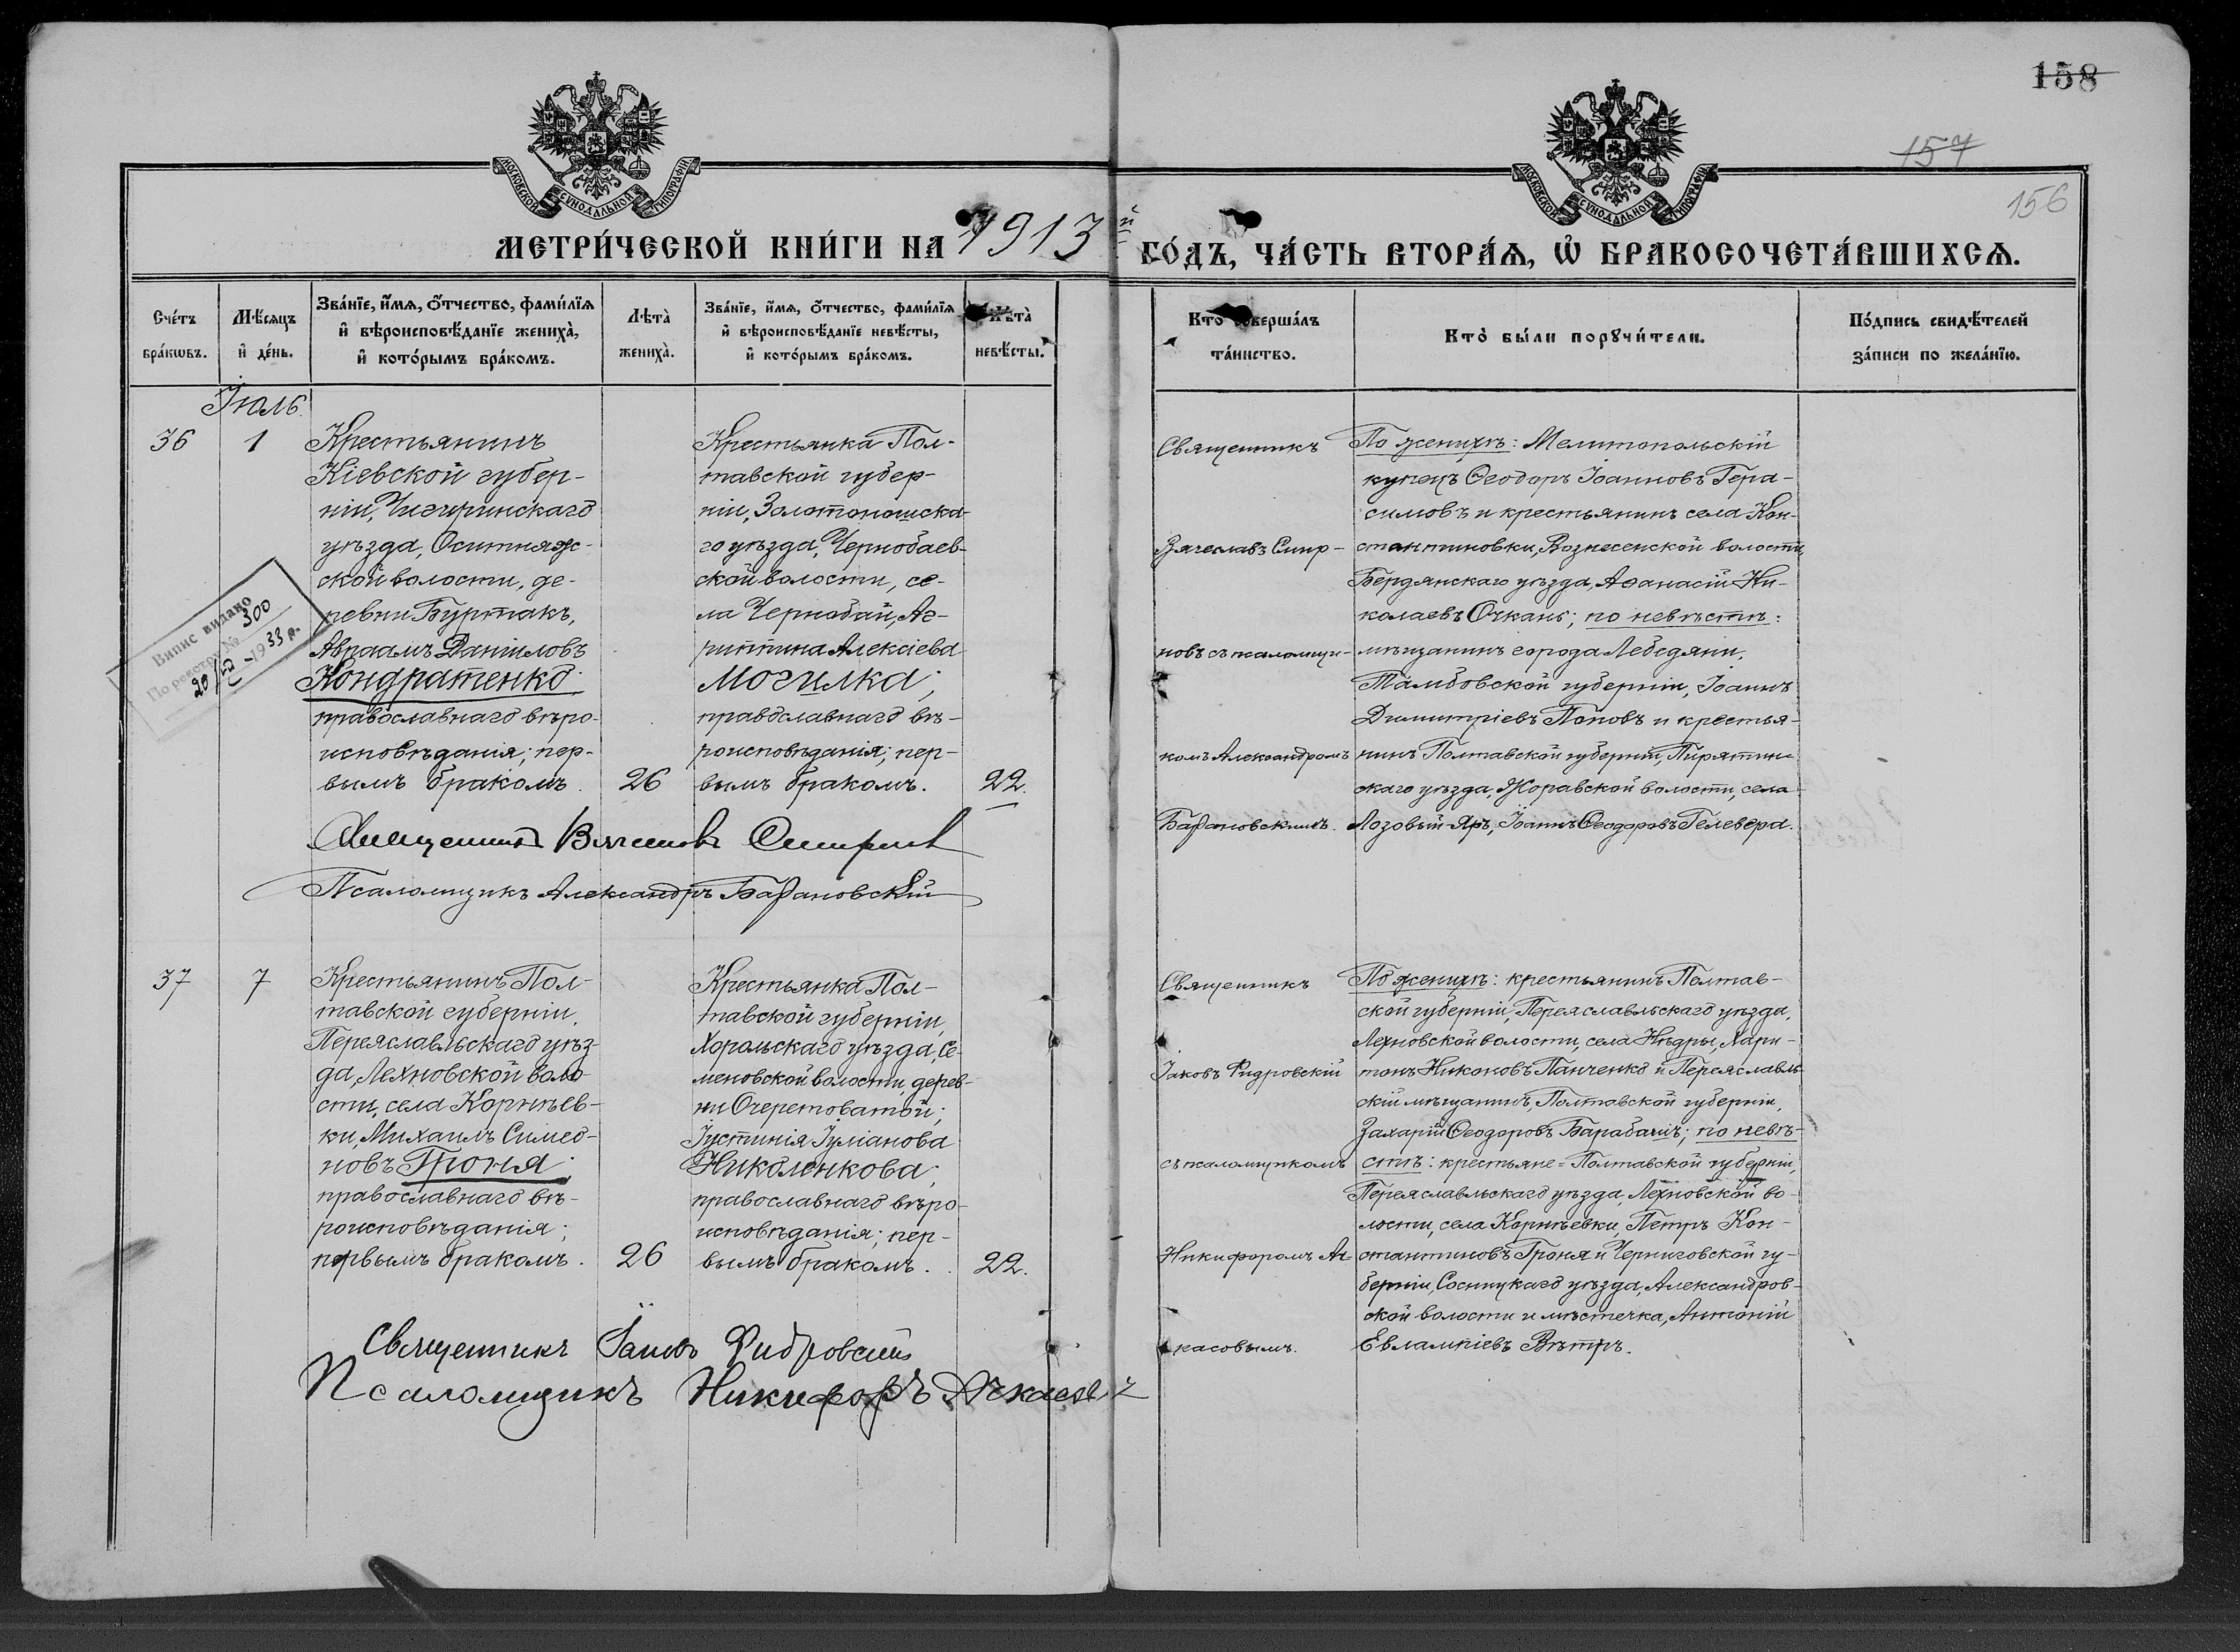 158
157
156
МОСКОВСКОЙ СУНОДАЛЬНОЙ ТИПОГРАФІИ
МОСКОВСКОЙ СУНОДАЛЬНОЙ ТИПОГРАФІИ
МЕТРИ́ЧЕСКОЙ КНИ́ГИ НА 1913й ГО́ДЪ, ЧА́СТЬ ВТОРА́Я, Ѡ БРАКОСОЧЕТА́ВШИХСЯ.
Сче́тъ бра́кѡвъ.
Мѣ́сяцъ и҆ де́нь.
Зва́нїе, и҆́мя, ѻ҆́тчество, фами́лїя
и҆ вѣроисповѣ́данїе жениха̀,
и҆ кото́рымъ бра́комъ.
Лѣта̀ жениха̀.
Зва́нїе, и҆́мя, ѻ҆́тчество, фами́лїя
и҆ вѣроисповѣ́данїе невѣ́сты,
и҆ кото́рымъ бра́комъ.
Лѣта̀ невѣ́сты.
Кто̀ соверша́лъ та́инство.
Кто̀ бы́ли порꙋчи́тели.
По́дпись свидѣ́телей за́писи по жела́нїю.
Іюль.
36
1
Крестьянинъ
Кіевской губер-
ніи, Чигиринскаго
уѣзда, Оситняж-
ской волости, де-
ревни Буртакъ,
Авраамъ Даніиловъ
Кондратенко;
православнаго вѣро-
исповѣданія; пер-
вымъ бракомъ.
26
Крестьянка Пол-
тавской губер-
ніи, Золотоношска-
го уѣзда, Чернобаев-
ской волости, се-
ла Чернобай, Аг-
риппина Алексіева
Могилка;
православнаго вѣ-
роисповѣданія; пер-
вымъ бракомъ.
22.
Випис видано
По реестру № 300
20/ 1933 р.
Священникъ Вячеславъ Смирновъ
Псаломщикъ Александръ Барановскій
Священникъ
Вячеславъ Смир-
новъ съ псаломщи-
комъ Александромъ
Барановскимъ.
По женихѣ: Мелитопольскій
купецъ Ѳеодоръ Іоанновъ Гера-
симовъ и крестьянинъ села Кон-
стантиновки, Вознесенской волости,
Бердянскаго уѣзда, Аѳанасій Ни-
колаевъ Очкань; по невѣстѣ:
мѣщанинъ города Лебедяни,
Тамбовской губерніи, Іоаннъ
Димитріевъ Поповъ и крестья-
нинъ Полтавской губерніи, Пирятин-
скаго уѣзда, Жоравской волости, села
Лозовый-Яръ, Іоаннъ Ѳеодоровъ Гелевера.
37
7
Крестьянинъ Пол-
тавской губерніи,
Переяславльскаго уѣз-
да, Лехновской воло-
сти, села Корнѣев-
ки, Михаилъ Симео-
новъ Гроня;
православнаго вѣ-
роисповѣданія;
первымъ бракомъ.
26
Крестьянка Пол-
тавской губерніи,
Хорольскаго уѣзда, Се-
меновской волости, дерев-
ни Очеретоватой;
Іустинія Іуліанова
Николенкова;
православнаго вѣро-
исповѣданія; пер-
вымъ бракомъ.
22.
Священникъ Іаковъ Фидровскій
Псаломщикъ Никифоръ Аркасовъ
Священникъ
Іаковъ Фидровскій
съ псаломщикомъ
Никифоромъ Ар-
касовымъ.
По женихѣ: крестьянинъ Полтав-
ской губерніи, Переяславльскаго уѣзда,
Лехновской волости, села Нѣдры, Хари-
тонъ Никоновъ Панченко и Переяславль-
скій мѣщанинъ, Полтавской губерніи,
Захарій Ѳеодоровъ Барабашъ; по невѣ-
стѣ: крестьяне = Полтавской губерніи,
Переяславльскаго уѣзда, Лехновской во-
лости, села Корнѣевки, Петръ Кон-
стантиновъ Гроня и Черниговской гу-
берніи, Сосницкаго уѣзда, Александров-
ской волости и мѣстечка, Антоній
Евлампіевъ Вѣтръ.